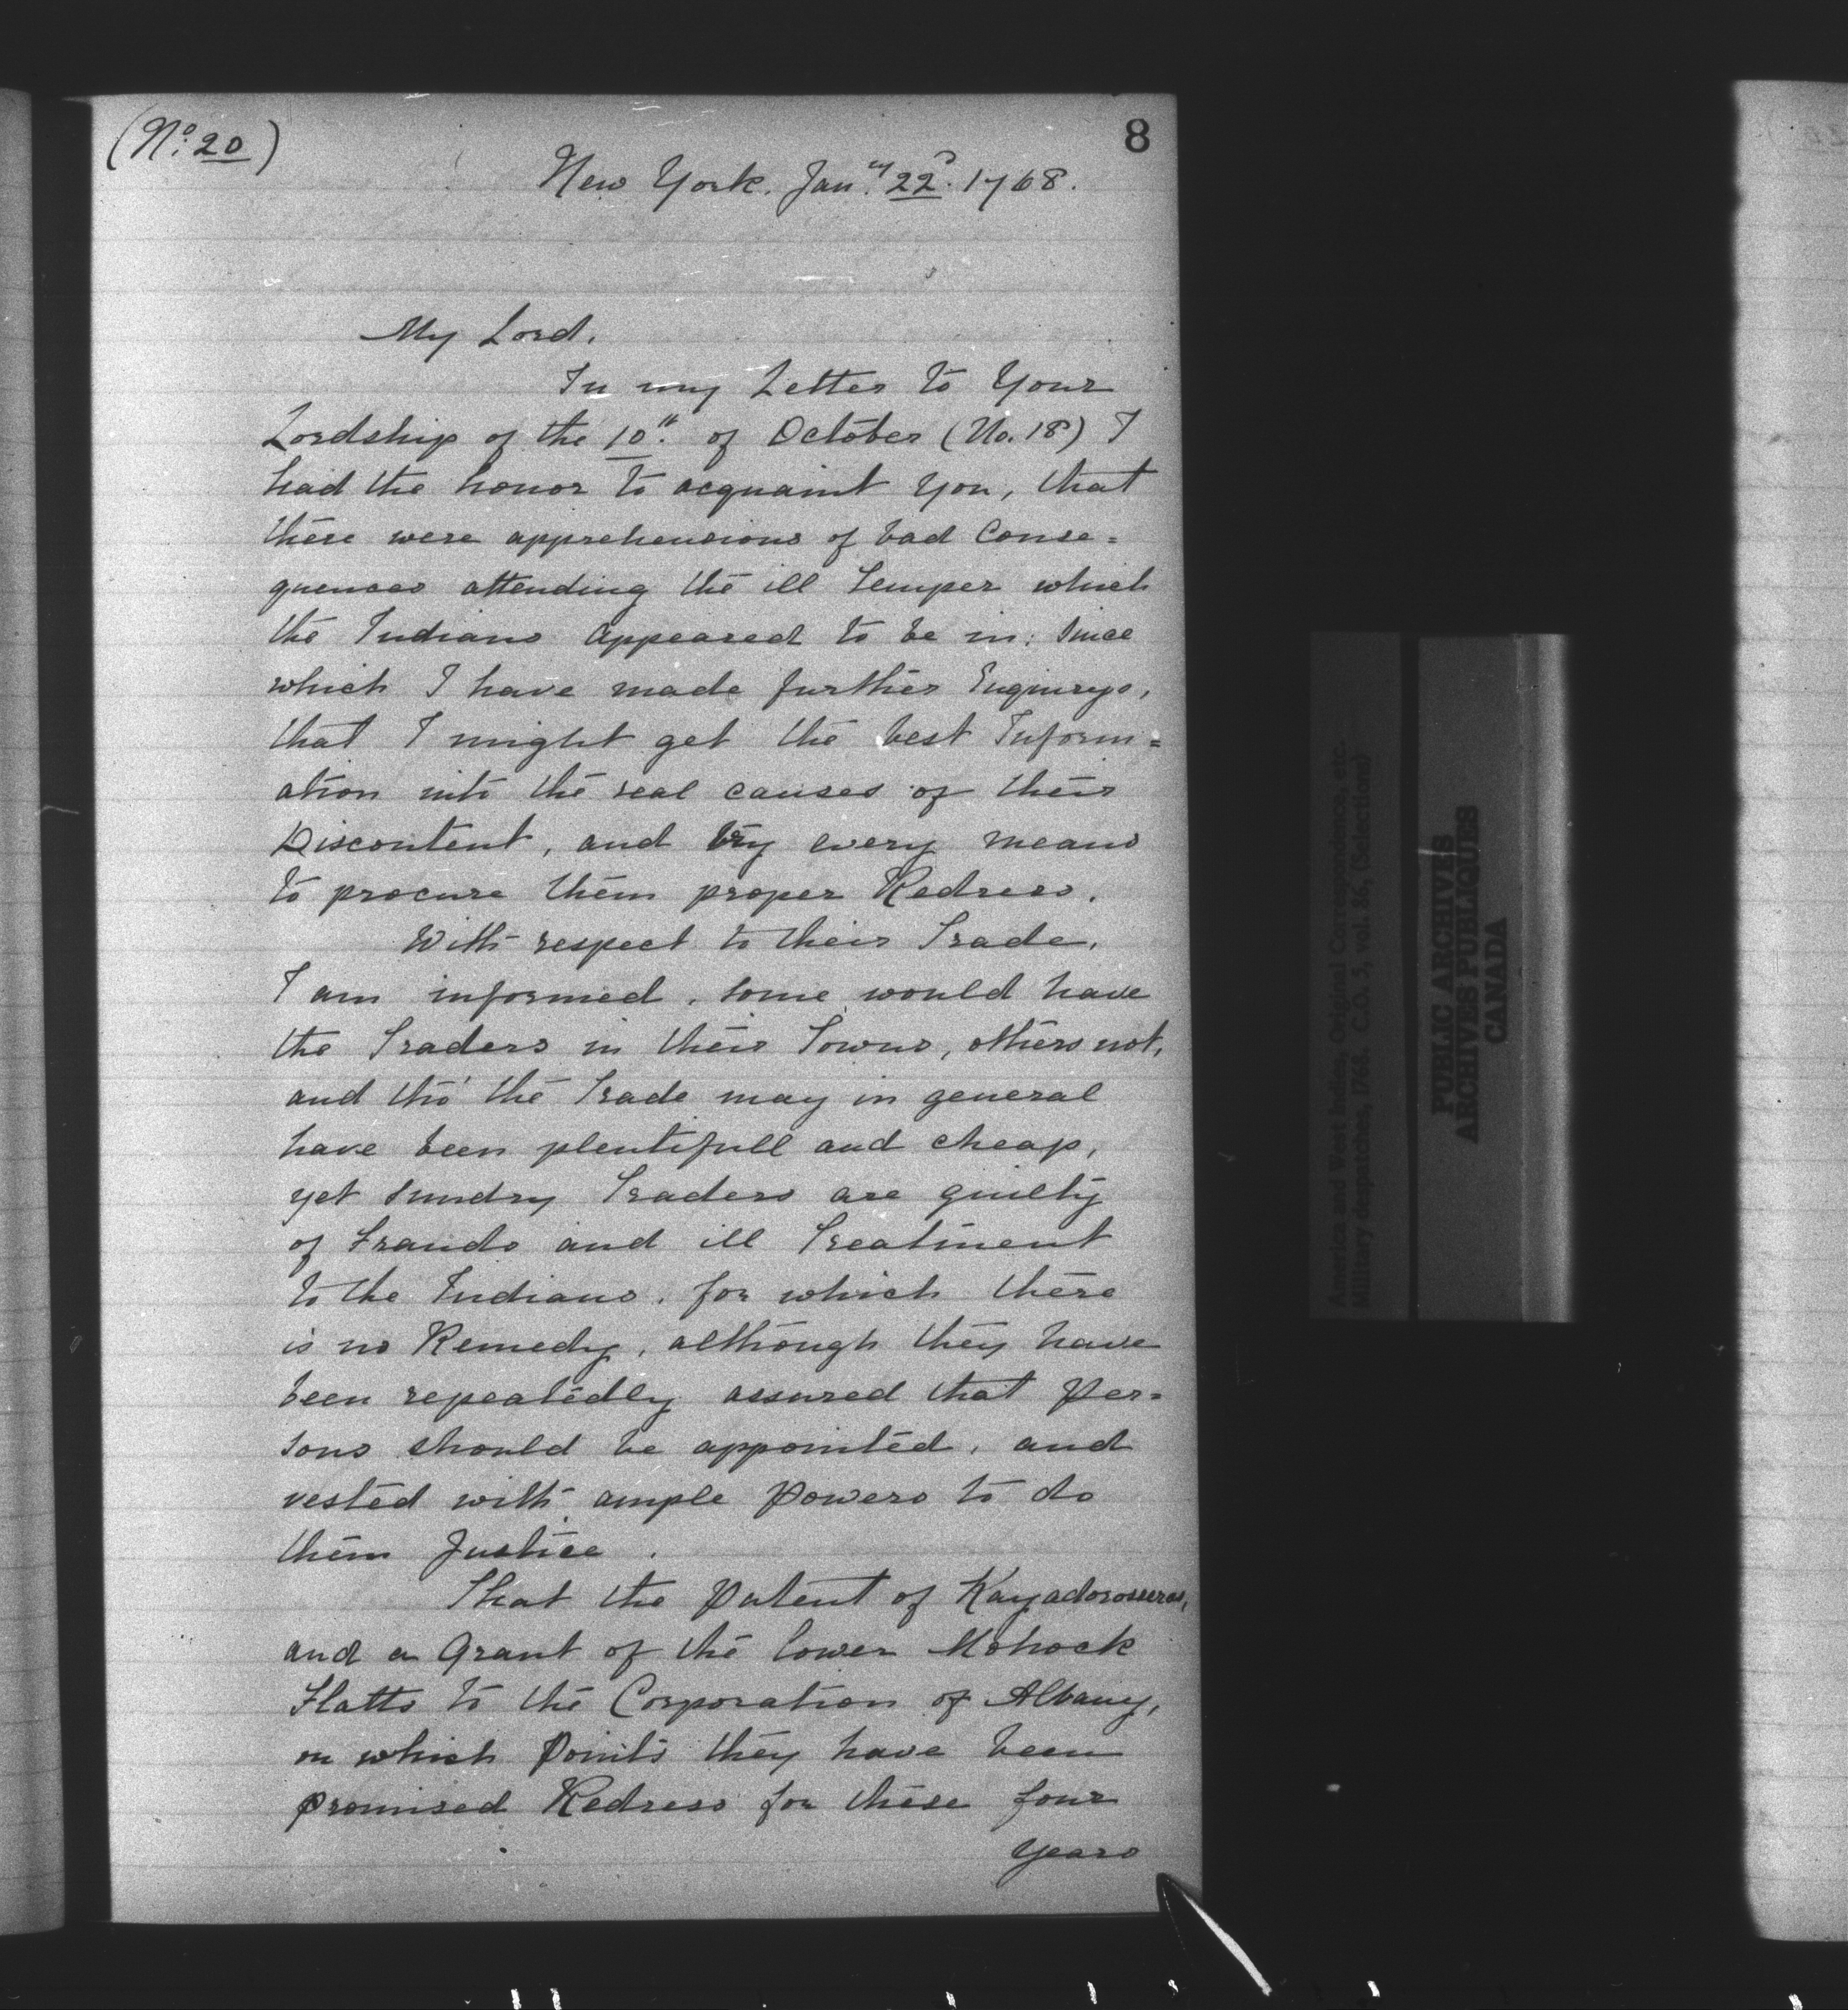 (No. 20)
8
New York. Jan.ry 22d. 1768.
My Lord.
In my Letter to Your
Lordship of the 10th. of October (No. 18) I
had the honor to acquaint You, that
there were apprehensions of bad Conse=
quences attending the ill Temper which
the Indians appeared to be in: Since
which I have made further Enquirys,
that I might get the best Inform=
ation into the real causes of their
Discontent, and try every means
to procure them proper Redress.
With respect to their Trade,
I am informed, some would have
the Traders in their Towns, others not,
and tho' the Trade may in general
have been plentifull and cheap,
yet sundry Traders are guilty
of Frauds and ill Treatment
to the Indians, for which there
is no Remedy, although they have
been repeatedly assured that Per=
sons should be appointed, and
vested with ample Powers to do
them Justice.
That the Patent of Kayadorosseras,
and a Grant of the lower Mohock
Flatts to the Corporation of Albany,
on which Points they have been
promised Redress for these four
Years
America and West Indies, Original Correspondence, etc.
Military despatches, 1768. C.O. 5, vol. 86, (Selections)
PUBLIC ARCHIVES
ARCHIVES PUBLIQUES
CANADA